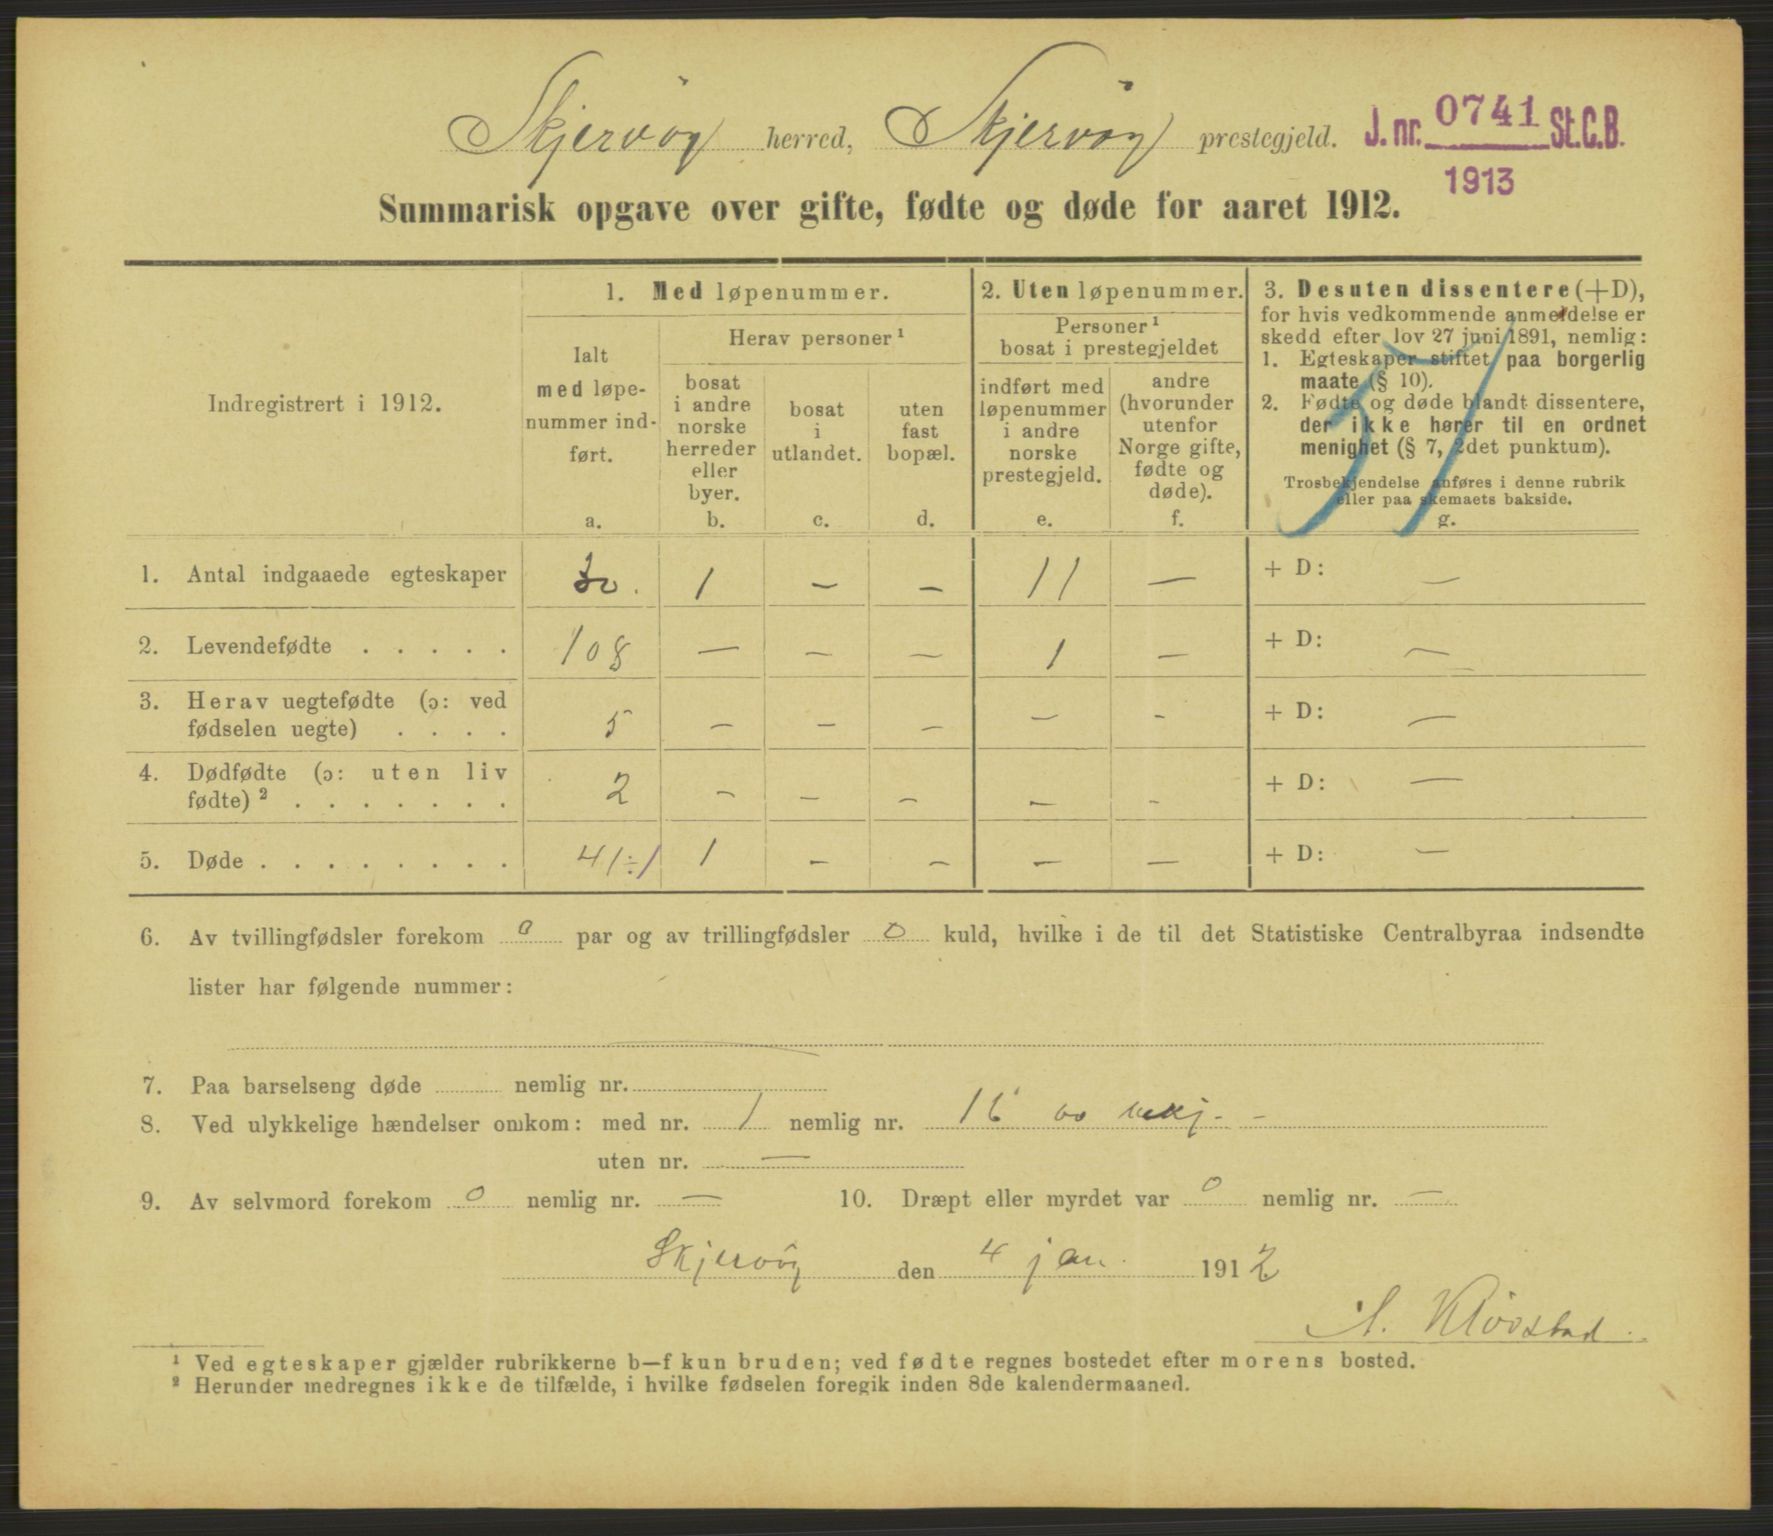 Skjervøy herred, Skjervøy prestegjeld. J. nr. 0741 St.C.B.
1913
Summarisk opgave over gifte, fødte og døde for aaret 1912.
Indregistrert i 1912.
1. Med løpenummer.
Ialt
med løpe-
nummer ind-
ført.
a.
Herav personer ¹
bosat
i andre
norske
herreder
eller
byer.
b.
bosat
i
utlandet.
c.
uten
fast
bopæl.
d.
2. Uten løpenummer.
Personer ¹
bosat i prestegjeldet
indført med
løpenummer
i andre
norske
prestegjeld.
e.
andre
(hvorunder
utenfor
Norge gifte,
fødte og
døde).
f.
3. Desuten dissentere (+D),
for hvis vedkommende anmeldelse er
skedd efter lov 27 juni 1891, nemlig:
1. Egteskaper stiftet paa borgerlig
maate (§ 10).
2. Fødte og døde blandt dissentere,
der ikke hører til en ordnet
menighet (§ 7, 2det punktum).
Trosbekjendelse anføres i denne rubrik
eller paa skemaets bakside.
g.
1. Antal indgaaede egteskaper 30. 1 — — 11 — + D: —
2. Levendefødte . . . . . 108 — — — 1 — + D: —
3. Herav uegtefødte (ɔ: ved
fødselen uegte) . . . . 5 — — — — - + D: —
4. Dødfødte (ɔ: uten liv
fødte) ² . . . . . . . 2 — — — — - + D: —
5. Døde . . . . . . . . 41÷1 1 — — — — + D: —
6. Av tvillingfødsler forekom 0 par og av trillingfødsler 0 kuld, hvilke i de til det Statistiske Centralbyraa indsendte
lister har følgende nummer:
7. Paa barselseng døde nemlig nr.
8. Ved ulykkelige hændelser omkom: med nr. 1 nemlig nr. 16
uten nr. —
9. Av selvmord forekom 0 nemlig nr. — 10. Dræpt eller myrdet var 0 nemlig nr. —
Skjervøy den 4 jan. 1912
A. Kløvstad.
¹ Ved egteskaper gjælder rubrikkerne b—f kun bruden; ved fødte regnes bostedet efter morens bosted.
² Herunder medregnes ikke de tilfælde, i hvilke fødselen foregik inden 8de kalendermaaned.